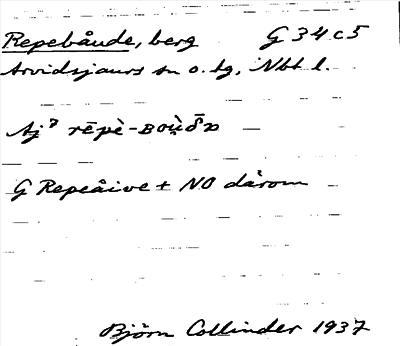 Repebåude, berg G 34 c 5
Arvidsjaurs sn o. lg, Nbt l.
Aj⁷ rēpè-ʙoụ̀δ̄ɒ
G Repeåive + NO därom
Björn Collinder 1937